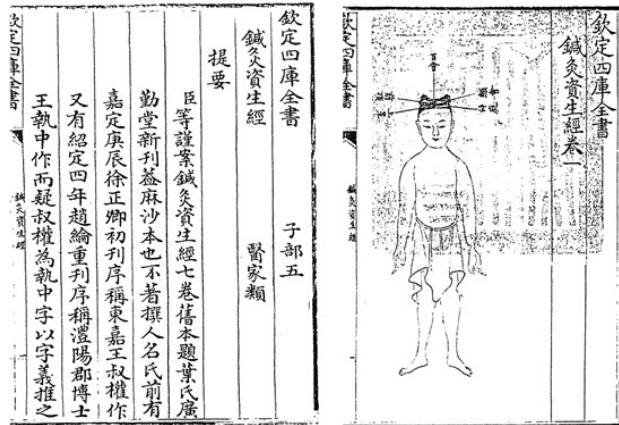 欽定四庫全書
鍼灸資生經卷一
百會
鍼灸資生經
欽定四庫全書
欽定四庫全書
子部五
鍼灸資生經
醫家類
提要
臣等謹案鍼灸資生經七卷舊本題葉氏廣
勤堂新刊葢麻沙本也不著撰人名氏前有
嘉定庚辰徐正卿初刊序稱東嘉王叔權作
又有紹定四年趙綸重刊序稱澧陽郡博士
王執中作而疑叔權為執中字以字義推之
鍼灸資生經
欽定四庫全書